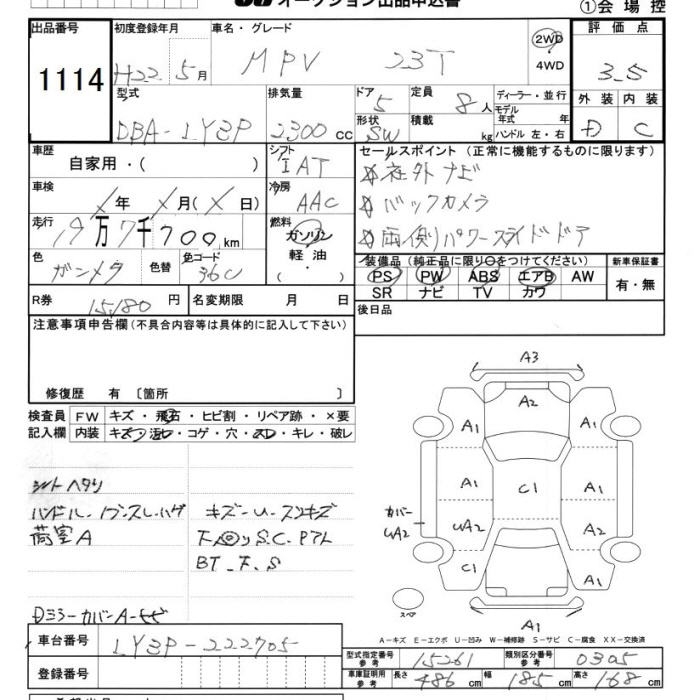 オークション出品申込書
①会場控
出品番号 1114
初度登録年月 H22年 5月
車名・グレード MPV 23T
2WD
4WD
評価点 3.5
外装 D 内装 C
型式 DBA-LY3P
排気量 2300 cc
ドア 5
形状 SW
定員 8人
積載 kg
ディーラー・並行
モデル年式 年
ハンドル 左・右
車歴 自家用・( )
シフト IAT
セールスポイント (正常に機能するものに限ります)
社外ナビ
バックカメラ
両側パワースライドドア
車検 X年 X月(X日)
冷房 AAC
走行 19万7千700km
燃料 ガソリン
軽油
( )
色 ガンメタ 色替 色コード 36C
装備品 (純正品に限り○をつけてください)
PS PW ABS エアB AW
SR ナビ TV カワ
新車保証書 有・無
R券 15180円 名変期限 月 日
後日品
注意事項申告欄 (不具合内容等は具体的に記入して下さい)
修復歴 有 〔箇所 〕
検査員 FW キズ・飛石・ヒビ割・リペア跡・×要
記入欄 内装 キズ・汚レ・コゲ・穴・スレ・キレ・破レ
シートヘタリ
ハンドル・ノブスレ・ハゲ
荷室A
キズ-U-スリキズ
BT-F.S
Dミラーカバー A-
A3
A2
A1 A1
A1 C1 A1
カバー UA2 UA2 A2
C1 A1
スペア
A1
A-キズ E-エクボ U-凹み W-補修跡 S-サビ C-腐食 XX-交換済
車台番号 LY3P-222705
登録番号
型式指定番号 参考 15261 類別区分番号 参考 0305
車庫証明用 参考 長さ 486cm 幅 185cm 高さ 168cm